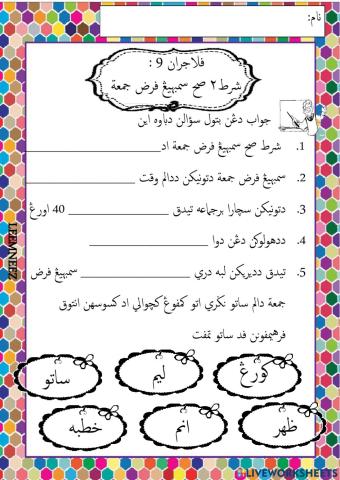 نام:
فلاجرن 9 :
شرط٢ صح سمبهيڠ فرض جمعة
جواب دڠن بتول سؤالن دباوه اين :
1. شرط صح سمبهيڠ فرض جمعة اد
2. سمبهيڠ فرض جمعة دتونيكن ددالم وقت
3. دتونيكن سچارا برجماعه تيدق 40 اورڠ
4. ددهولوكن دڠن دوا
5. تيدق دديريكن لبه دري سمبهيڠ فرض
جمعة دالم ساتو نݢري اتو كمفوڠ كچوالي اد كسوسهن انتوق
فرهيمفونن فد ساتو تمفت
كورڠ
ليم
ساتو
ظهر
انم
خطبه
LEEMNEEZ
LIVEWORKSHEETS